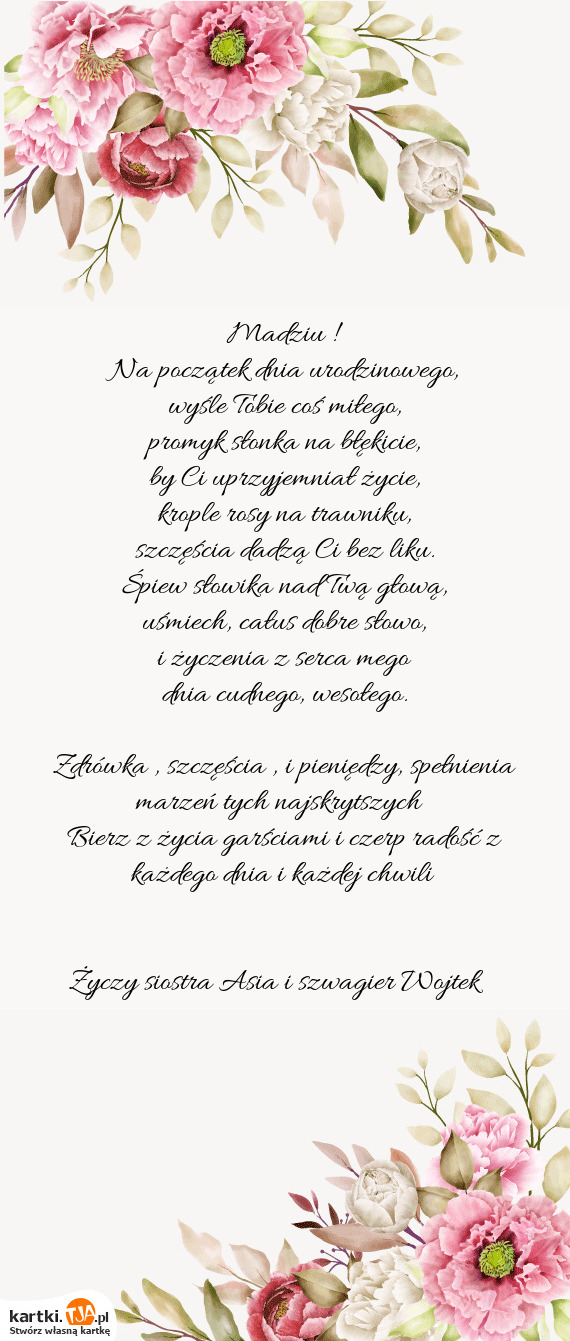 Madziu !
Na początek dnia urodzinowego,
wyśle Tobie coś miłego,
promyk słonka na błękicie,
by Ci uprzyjemniał życie,
krople rosy na trawniku,
szczęścia dadzą Ci bez liku.
Śpiew słowika nad Twą głową,
uśmiech, całus dobre słowo,
i życzenia z serca mego
dnia cudnego, wesołego.
Zdrówka , szczęścia , i pieniędzy, spełnienia
marzeń tych najskrytszych
Bierz z życia garściami i czerp radość z
każdego dnia i każdej chwili
Życzy siostra Asia i szwagier Wojtek
kartki.TJA.pl
Stwórz własną kartkę